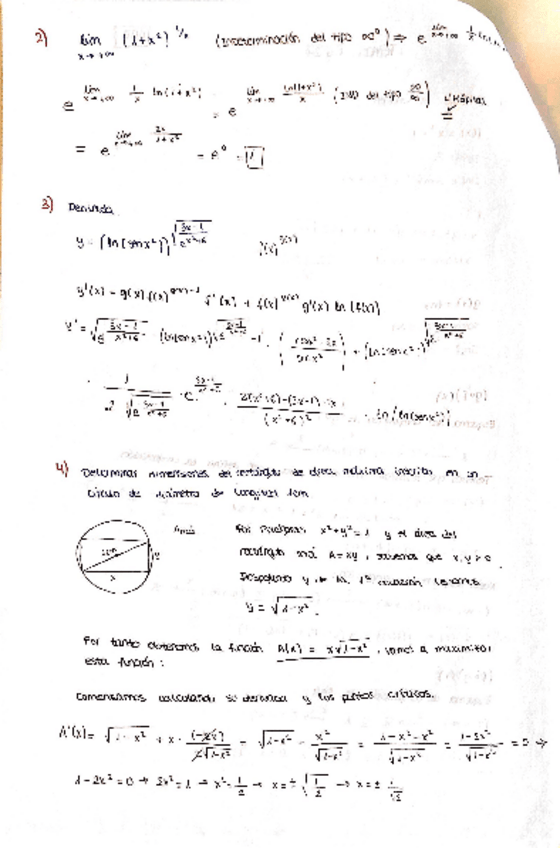 2) lim x→+∞ (1+x²)^1/x (Indeterminación del tipo ∞⁰) ⇒ e^lim x→+∞ 1/x ln
e^lim x→+∞ 1/x ln(1+x²) = e^lim x→+∞ ln(1+x²)/x (IND del tipo ∞/∞) L'Hôpital
= e^lim x→+∞ 2x/1+x² = e⁰ = 1
3) Derivada
y = [ln(senx²)]^√e^3x-1/x²+6 f(x)^g(x)
y'(x) = g(x) f(x)^g(x)-1 f'(x) + f(x)^g(x) g'(x) ln(f(x))
4) Determinar dimensiones del rectángulo de área máxima inscrito en un
círculo de diámetro de longitud 1cm
Por Pitágoras x²+y²=1 y el área del
1cm y
rectángulo será A=xy, sabemos que x,y>0.
x
Despejando y de la 1ª ecuación tenemos
y = √1-x².
Por tanto obtenemos la función A(x) = x√1-x², vamos a maximizar
esta función:
Comenzamos calculando su derivada y los puntos críticos.
A'(x) = √1-x² + x · (-2x)/2√1-x² = √1-x² - x²/√1-x² = 1-x²-x²/√1-x² = 1-2x²/√1-x² = 0 →
1-2x²=0 → 2x²=1 → x²=1/2 → x=±√1/2 → x=±1/√2